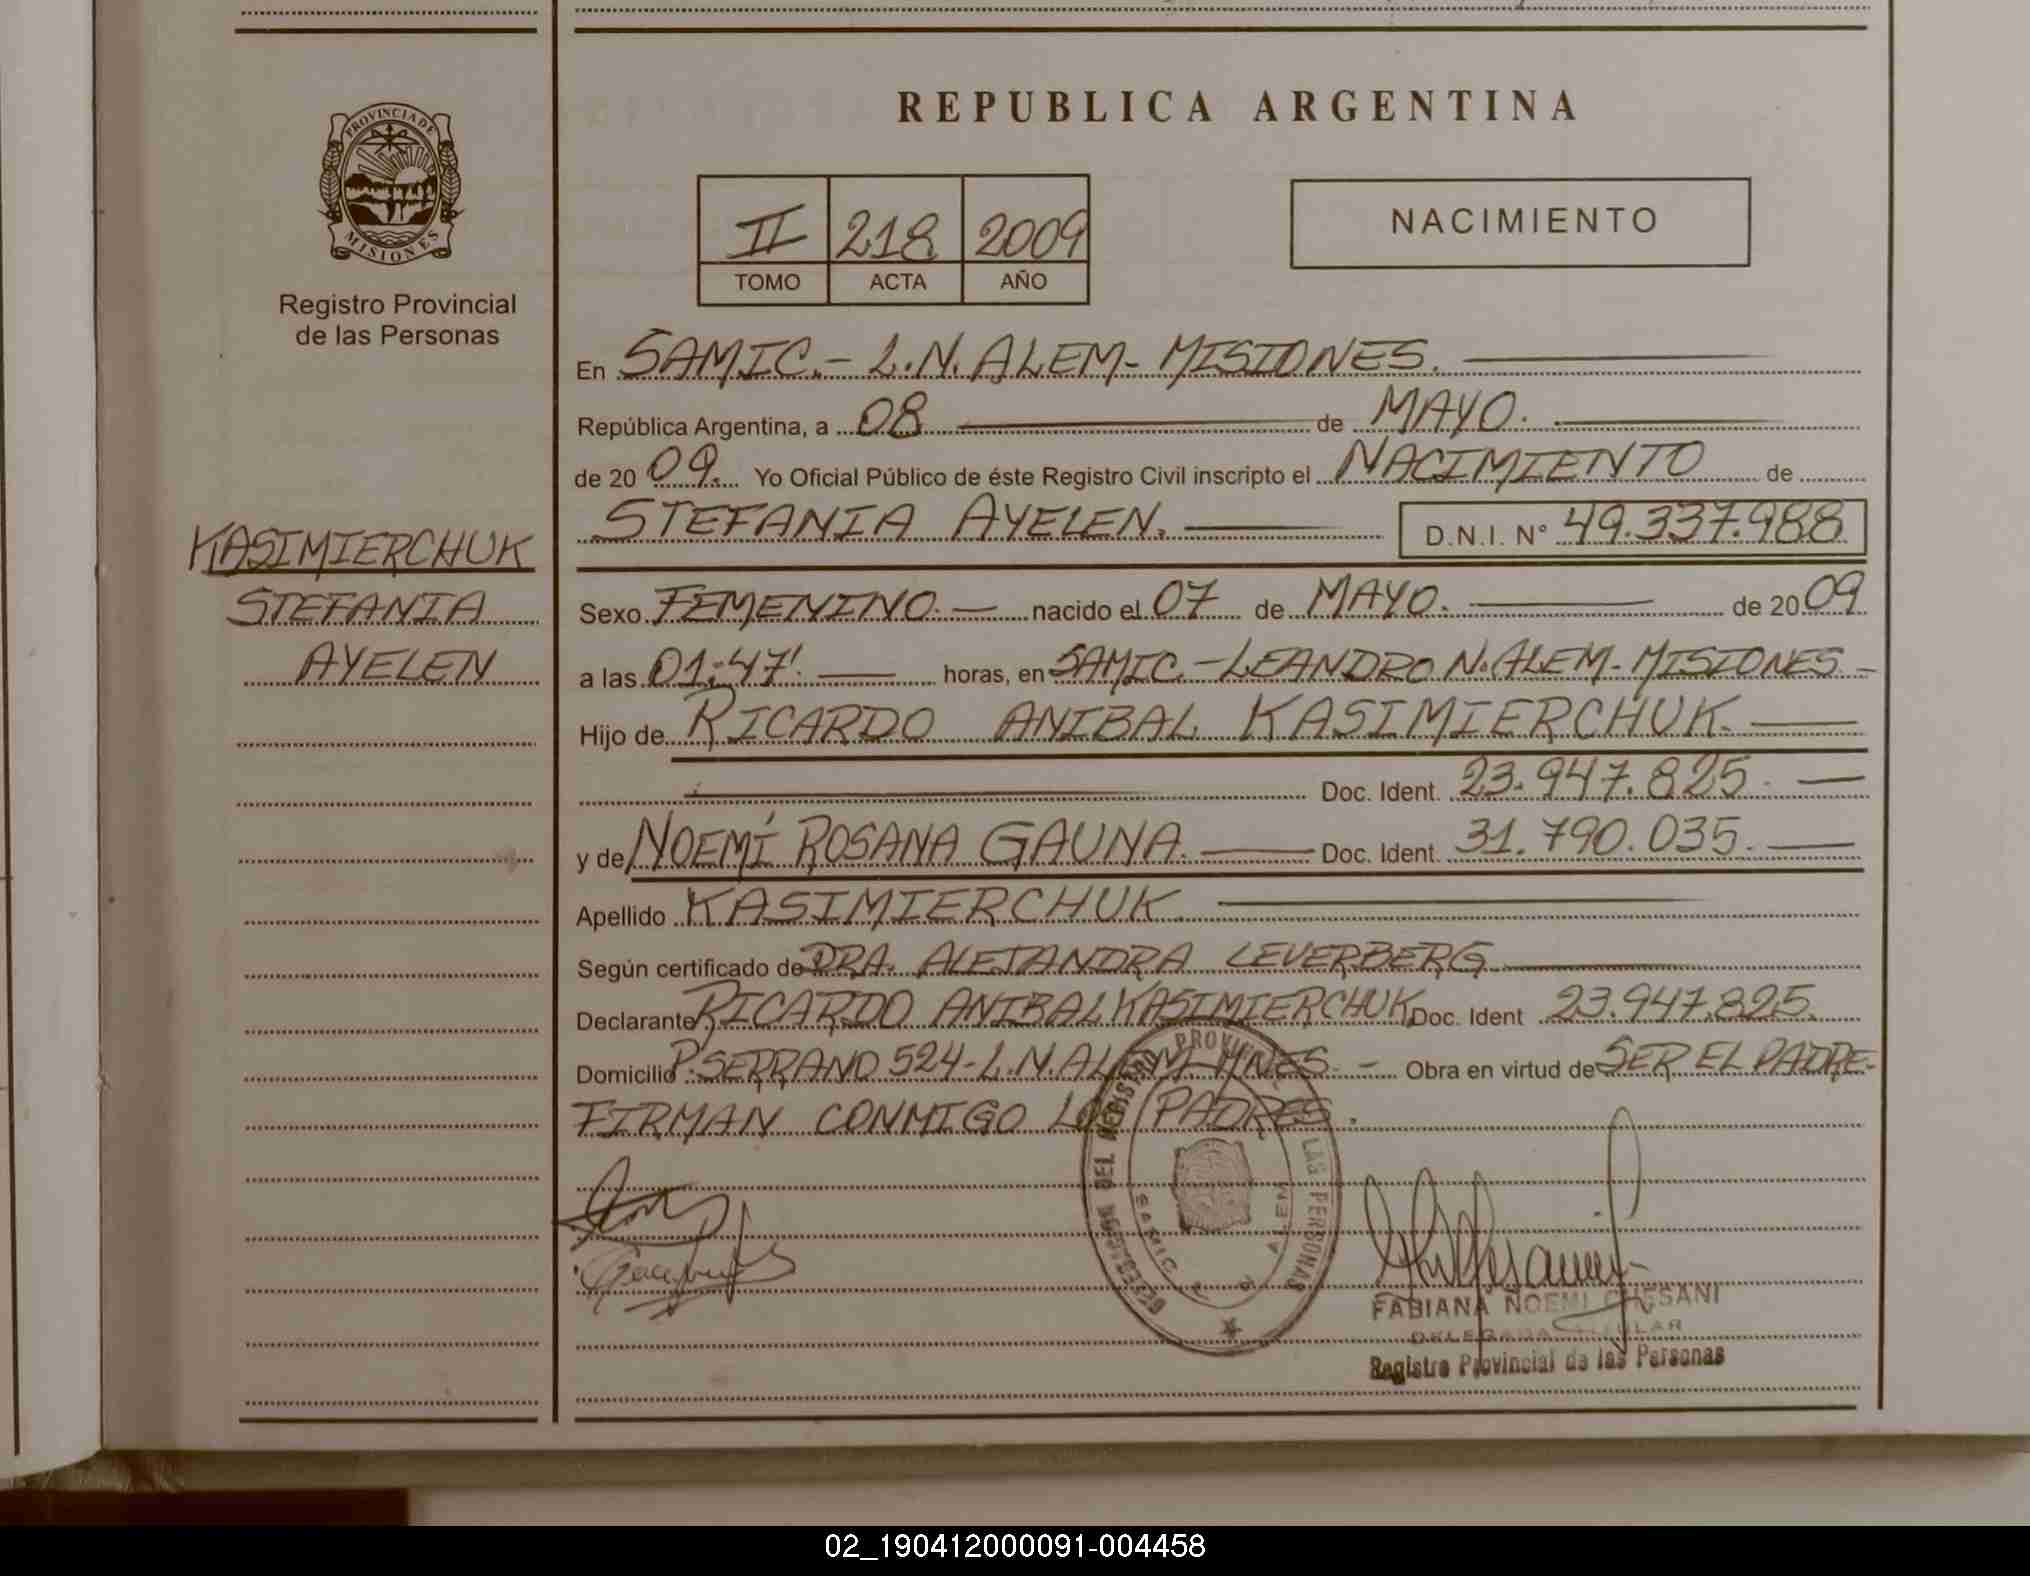 PROVINCIA DE
MISIONES
Registro Provincial
de las Personas
KASIMIERCHUK
STEFANIA
AYELEN
REPUBLICA ARGENTINA
II 218 2009
TOMO ACTA AÑO
NACIMIENTO
En SAMIC.- L.N. ALEM- MISIONES.
República Argentina, a 08 de MAYO.
de 2009. Yo Oficial Público de éste Registro Civil inscripto el NACIMIENTO de
STEFANIA AYELEN. D.N.I. N° 49.337.988
Sexo FEMENINO.- nacido el 07 de MAYO. de 2009
a las 01:47'. horas, en SAMIC.-LEANDRO N. ALEM- MISIONES-
Hijo de RICARDO ANIBAL KASIMIERCHUK.
Doc. Ident. 23.947.825.
y de NOEMÍ ROSANA GAUNA. Doc. Ident. 31.790.035.
Apellido KASIMIERCHUK
Según certificado de DRA. ALEJANDRA LEVERBERG
Declarante RICARDO ANIBAL KASIMIERCHUK Doc. Ident 23.947.825.
Domicilio P. SERRANO 524-L.N. ALEM-MNES.- Obra en virtud de SER EL PADRE.
FIRMAN CONMIGO LOS PADRES.
DEL REGISTRO PROVINCIAL LAS PERSONAS
SAMIC ALEM
FABIANA NOEMI CHESANI
DELEGADA TITULAR
Registro Provincial de las Personas
02_190412000091-004458